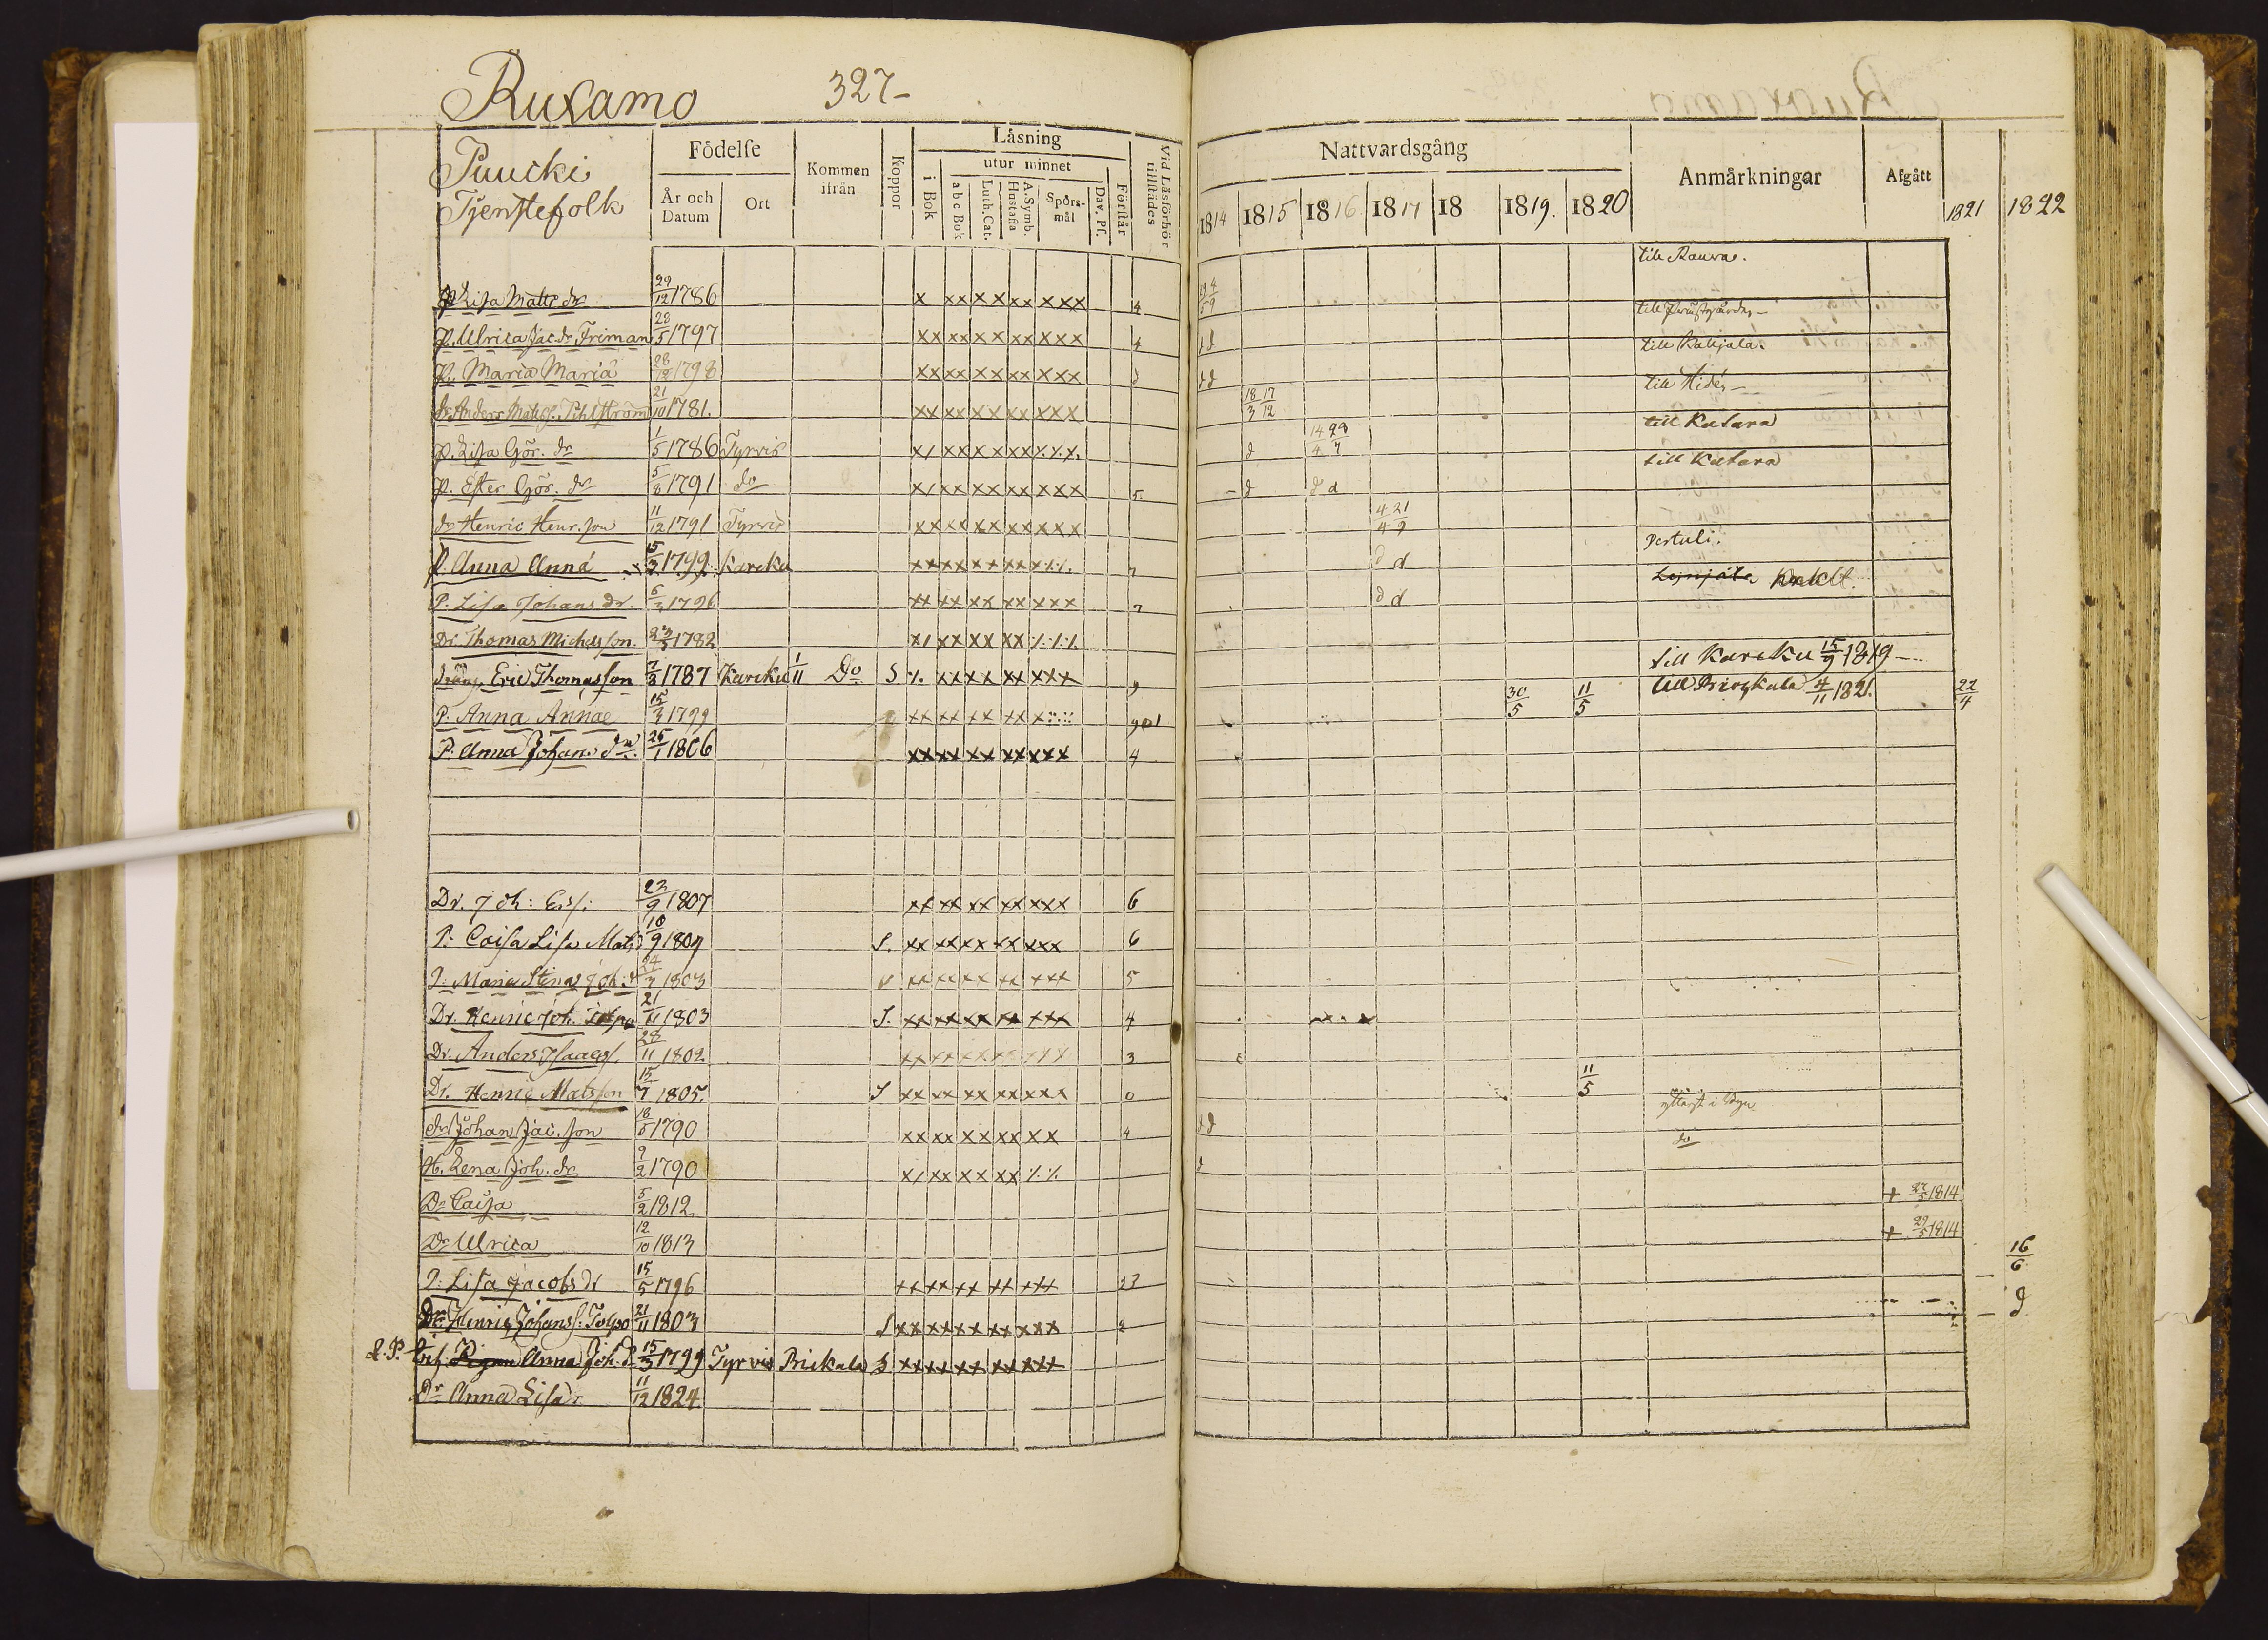 Ruxamo 327-
Puucki
Tjenstefolk
Födelse
År och Datum
Ort
Kommen ifrån
Koppor
Läsning
i Bok
utur minnet
abc Bok
Luth. Cat.
A. Symb. Hustafla
Spörs-mål
Dav. Ps.
Förstår
Vid Läsförhör tillstädes
Nattvardsgång
1814 1815 1816 1817 18 1819. 1820
Anmärkningar
Afgått
1821 1822
P. Lisa Matts dr 29/12 1786 x xx xx xx xxx 4 till Rauva.
P. Ulrica Jac. dr Friman 28/5 1797 xx xx xx xx xxx 4 dd
P. Maria Mariæ 28/12 1798 xx xx xx xx xxx d dd till Kalljala.
dr Anders Matss. 21/10 1781. xx xx xx xx xxx 18/3 17/12 till Hide
P. Lisa Gör. dr 1/5 1786 Tyrvis d 14/4 till Kutara
P. Ester Gör. dr 5/8 1791 do xx xx xx xxx 5. d d d till Kutara
dr Henric Henr. son 11/12 1791 Tyrvis xx xx xx xx xxx 4/4 21/9
P. Anna Annæ 15/3 1799. Karcku 7 d d Pertuli.
P. Lisa Johans dr. 6/3 1796 xx xx xx xx xxx 7 d d
Dr. Thomas Michelsson. 23/3 1782
dräng Eric Thomasson 7/8 1787 Karcku 1/11 Do S xx xx xx xxx 9 till Karcku 15/9 1819
P. Anna Annæ 15/3 1799 xx xx xx xx 901 30/5 11/5 till Birckala 4/11 1821. 22/4
P. Anna Johans dr. 26/1 1806 xx xx xx xx xxx 4
Dr. Joh: Ers: 23/9 1807 xx xx xx xx xxx 6
P: Caisa Lisa Mats 18/9 1807 S. xx xx xx xx xxx 6
P: Maria Stina Joh: d 24/3 1803 v xx xx xx xx xxx 5
Dr. Henric Joh. 21/11 1803 S. xx xx xx xx xxx 4
Dr. Anders Isaacss. 28/11 1802 xx xx xx xx xxx 3
Dr. Henric Matsson 15/7 1805. S xx xx xx xx xxx 0 11/5
dr Johan Jac. son 18/6 1790 xx xx xx xx xx 4 dd
H. Lena Joh. dr 9/2 1790 d do
Dr Caisa 5/2 1812 + 27/5 1814
Dr Ulrica 12/10 1813 + 29/5 1814
P: Lisa Jacobs dr 15/5 1796 xx xx xx xx xxx 23 16/6
Dr. Henric Johanss. Tolpo 21/11 1803 S xx xx xx xx xxx 2 d
Anna Joh. d. 15/3 1799 Tyrvis Birkala S xx xx xx xx xxx
Dr Anna Lisa 11/12 1824